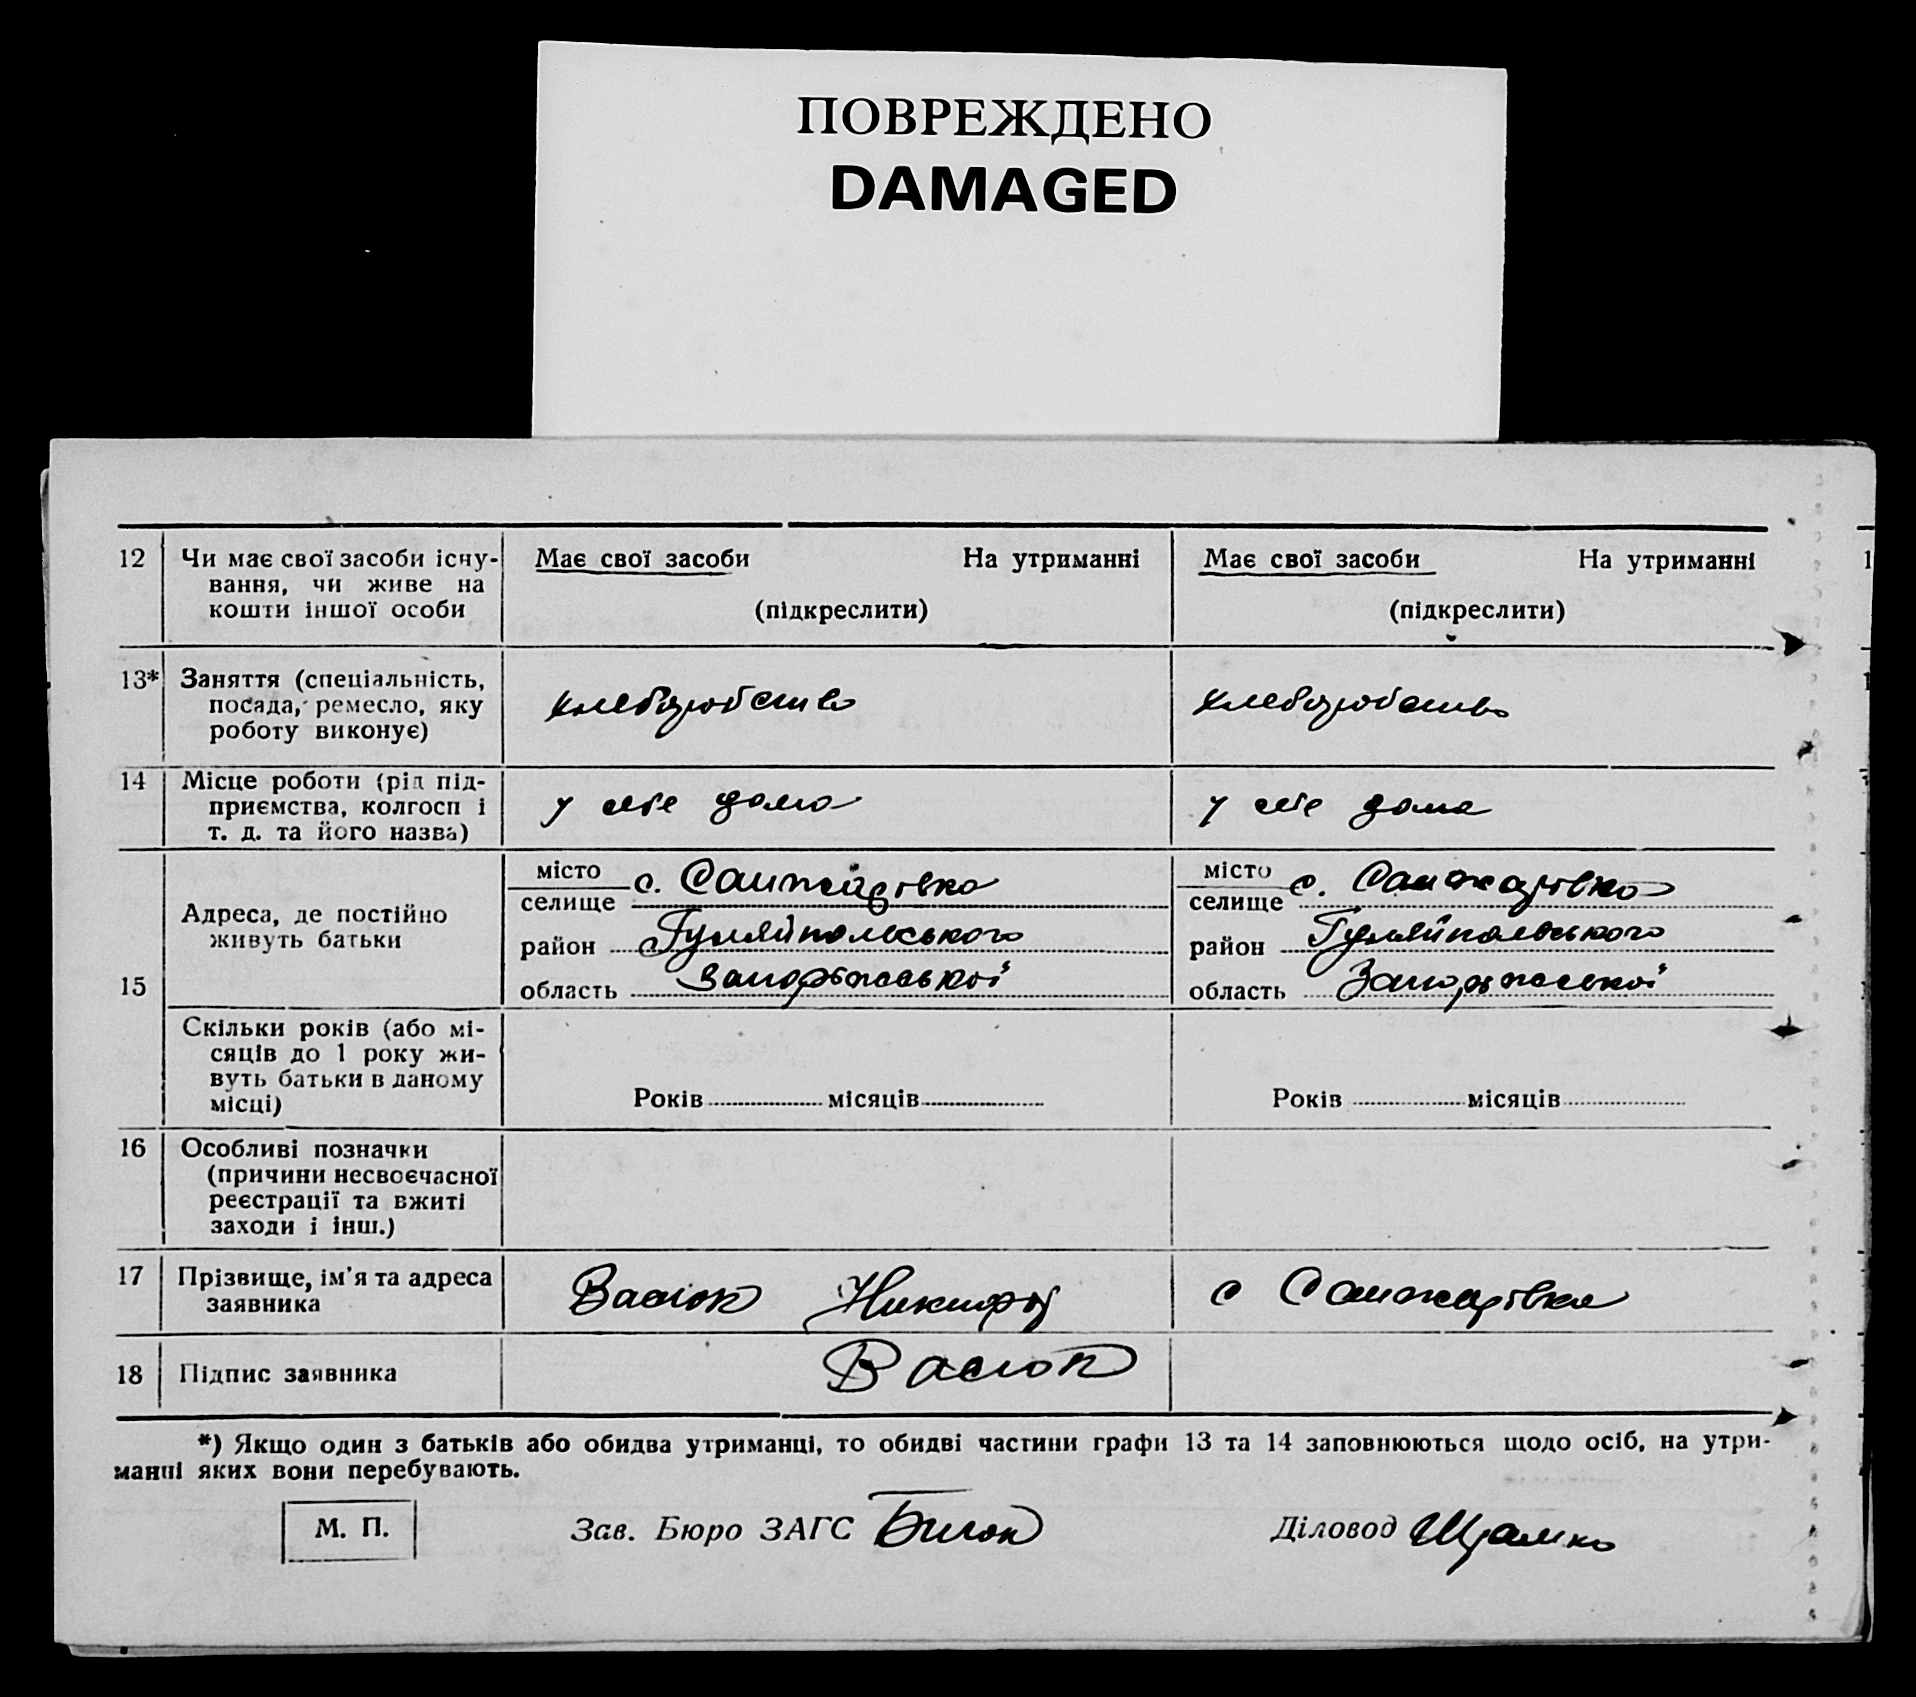 ПОВРЕЖДЕНО
DAMAGED
12 Чи має свої засоби існу-
вання, чи живе на
кошти іншої особи
Має свої засоби На утриманні
(підкреслити)
Має свої засоби На утриманні
(підкреслити)
13* Заняття (спеціальність,
посада, ремесло, яку
роботу виконує)
хлеборобство
хлеборобство
14 Місце роботи (рід під-
приємства, колгосп і
т. д. та його назва)
у себе дома
у себе дома
15 Адреса, де постійно
живуть батьки
місто
селище с. Санжарівка
район Гуляйпольського
область Запорізької
місто
селище с. Санжарівка
район Гуляйпольського
область Запорізької
Скільки років (або мі-
сяців до 1 року жи-
вуть батьки в даному
місці)
Років місяців
Років місяців
16 Особливі позначки
(причини несвоєчасної
реєстрації та вжиті
заходи і інш.)
17 Прізвище, ім'я та адреса
заявника
Васюк Никифор
с Санжарівка
18 Підпис заявника
Васюк
*) Якщо один з батьків або обидва утриманці, то обидві частини графи 13 та 14 заповнюються щодо осіб, на утри-
манні яких вони перебувають.
М. П.
Зав. Бюро ЗАГС
Діловод